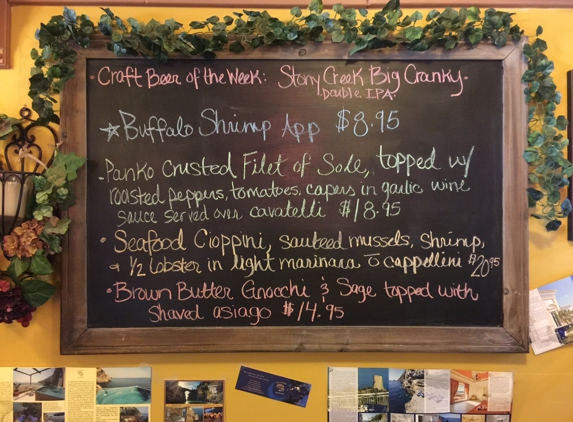 • Craft Beer of the Week: Stony Creek Big Cranky •
Double I.P.A.
☆ Buffalo Shrimp App $8.95
• Panko Crusted Filet of Sole, topped w/
roasted peppers, tomatoes, capers in garlic wine
sauce served over cavatelli $18.95
• Seafood Cioppini, sauteed mussels, shrimp,
& 1/2 lobster in light marinara c̄ cappellini $20.95
• Brown Butter Gnocchi & Sage topped with
shaved asiago $14.95